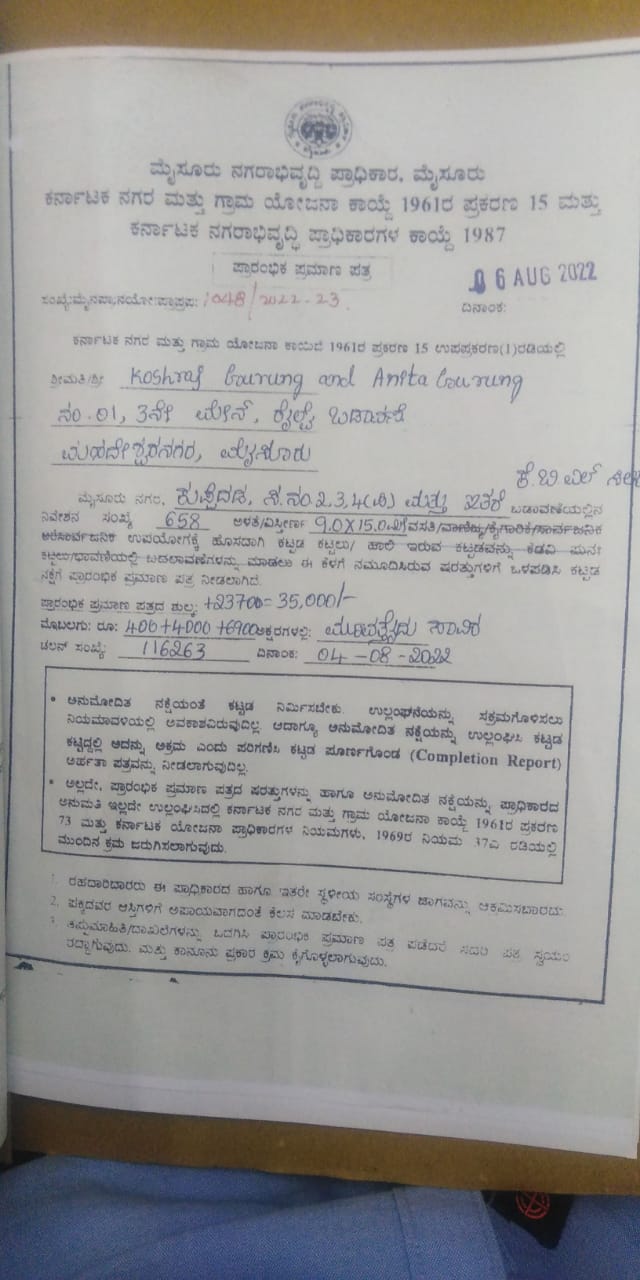 ಮೈಸೂರು ನಗರಾಭಿವೃದ್ಧಿ ಪ್ರಾಧಿಕಾರ, ಮೈಸೂರು
ಕರ್ನಾಟಕ ನಗರ ಮತ್ತು ಗ್ರಾಮ ಯೋಜನಾ ಕಾಯ್ದೆ 1961ರ ಪ್ರಕರಣ 15 ಮತ್ತು
ಕರ್ನಾಟಕ ನಗರಾಭಿವೃದ್ಧಿ ಪ್ರಾಧಿಕಾರಗಳ ಕಾಯ್ದೆ 1987
ಪ್ರಾರಂಭಿಕ ಪ್ರಮಾಣ ಪತ್ರ
06 AUG 2022
ಸಂಖ್ಯೆ:ಮೈನಪ್ರಾ:ನಯೋ:ಪ್ರಾಪ್ರಪ: 1048/2022-23 ದಿನಾಂಕ:
ಕರ್ನಾಟಕ ನಗರ ಮತ್ತು ಗ್ರಾಮ ಯೋಜನಾ ಕಾಯಿದೆ 1961ರ ಪ್ರಕರಣ 15 ಉಪಪ್ರಕರಣ(1)ರಡಿಯಲ್ಲಿ
ಶ್ರೀಮತಿ/ಶ್ರೀ Koshraj Gurung and Anita Gurung
ನಂ. 01, 3ನೇ ಮೇನ್, ರೈಲ್ವೆ ಬಡಾವಣೆ
ಮಹದೇಶ್ವರನಗರ, ಮೈಸೂರು
ಕೆ.ಬಿ.ಎಲ್
ಮೈಸೂರು ನಗರ, ಕುಪ್ಪೆದಡ, ಸ.ನಂ 2,3,4(ಪಿ) ಮತ್ತು ಇತರೆ ಬಡಾವಣೆಯಲ್ಲಿನ
ನಿವೇಶನ ಸಂಖ್ಯೆ 658 ಅಳತೆ/ವಿಸ್ತೀರ್ಣ 9.0X15.0ಮೀ ವಸತಿ/ವಾಣಿಜ್ಯ/ಕೈಗಾರಿಕೆ/ಸಾರ್ವಜನಿಕ
ಅರೆಸಾರ್ವಜನಿಕ ಉಪಯೋಗಕ್ಕೆ ಹೊಸದಾಗಿ ಕಟ್ಟಡ ಕಟ್ಟಲು/ ಹಾಲಿ ಇರುವ ಕಟ್ಟಡವನ್ನು ಕೆಡವಿ ಪುನಃ
ಕಟ್ಟಲು/ಛಾವಣಿಯಲ್ಲಿ ಬದಲಾವಣೆಗಳನ್ನು ಮಾಡಲು ಈ ಕೆಳಗೆ ನಮೂದಿಸಿರುವ ಷರತ್ತುಗಳಿಗೆ ಒಳಪಡಿಸಿ ಕಟ್ಟಡ
ನಕ್ಷೆಗೆ ಪ್ರಾರಂಭಿಕ ಪ್ರಮಾಣ ಪತ್ರ ನೀಡಲಾಗಿದೆ.
ಪ್ರಾರಂಭಿಕ ಪ್ರಮಾಣ ಪತ್ರದ ಶುಲ್ಕ: +23700=35,000/-
ಮೊಬಲಗು: ರೂ: 400+4000+6900 ಅಕ್ಷರಗಳಲ್ಲಿ: ಮೂವತ್ತೈದು ಸಾವಿರ
ಚಲನ್ ಸಂಖ್ಯೆ: 116263 ದಿನಾಂಕ: 04-08-2022
• ಅನುಮೋದಿತ ನಕ್ಷೆಯಂತೆ ಕಟ್ಟಡ ನಿರ್ಮಿಸಬೇಕು. ಉಲ್ಲಂಘನೆಯನ್ನು ಸಕ್ರಮಗೊಳಿಸಲು
ನಿಯಮಾವಳಿಯಲ್ಲಿ ಅವಕಾಶವಿರುವುದಿಲ್ಲ. ಆದಾಗ್ಯೂ ಅನುಮೋದಿತ ನಕ್ಷೆಯನ್ನು ಉಲ್ಲಂಘಿಸಿ ಕಟ್ಟಡ
ಕಟ್ಟಿದ್ದಲ್ಲಿ ಅದನ್ನು ಅಕ್ರಮ ಎಂದು ಪರಿಗಣಿಸಿ ಕಟ್ಟಡ ಪೂರ್ಣಗೊಂಡ (Completion Report)
ಅರ್ಹತಾ ಪತ್ರವನ್ನು ನೀಡಲಾಗುವುದಿಲ್ಲ.
• ಅಲ್ಲದೇ, ಪ್ರಾರಂಭಿಕ ಪ್ರಮಾಣ ಪತ್ರದ ಷರತ್ತುಗಳನ್ನು ಹಾಗೂ ಅನುಮೋದಿತ ನಕ್ಷೆಯನ್ನು ಪ್ರಾಧಿಕಾರದ
ಅನುಮತಿ ಇಲ್ಲದೇ ಉಲ್ಲಂಘಿಸಿದಲ್ಲಿ ಕರ್ನಾಟಕ ನಗರ ಮತ್ತು ಗ್ರಾಮ ಯೋಜನಾ ಕಾಯ್ದೆ 1961ರ ಪ್ರಕರಣ
73 ಮತ್ತು ಕರ್ನಾಟಕ ಯೋಜನಾ ಪ್ರಾಧಿಕಾರಗಳ ನಿಯಮಗಳು, 1969ರ ನಿಯಮ 37ಎ ರಡಿಯಲ್ಲಿ
ಮುಂದಿನ ಕ್ರಮ ಜರುಗಿಸಲಾಗುವುದು.
1. ರಹದಾರಿದಾರರು ಈ ಪ್ರಾಧಿಕಾರದ ಹಾಗೂ ಇತರೇ ಸ್ಥಳೀಯ ಸಂಸ್ಥೆಗಳ ಜಾಗವನ್ನು ಆಕ್ರಮಿಸಬಾರದು.
2. ಪಕ್ಕದವರ ಆಸ್ತಿಗಳಿಗೆ ಅಪಾಯವಾಗದಂತೆ ಕೆಲಸ ಮಾಡಬೇಕು.
3. ತಪ್ಪುಮಾಹಿತಿ/ದಾಖಲೆಗಳನ್ನು ಒದಗಿಸಿ ಪ್ರಾರಂಭಿಕ ಪ್ರಮಾಣ ಪತ್ರ ಪಡೆದರೆ ಸದರಿ ಪತ್ರ ಸ್ವಯಂ
ರದ್ದಾಗುವುದು. ಮತ್ತು ಕಾನೂನು ಪ್ರಕಾರ ಕ್ರಮ ಕೈಗೊಳ್ಳಲಾಗುವುದು.